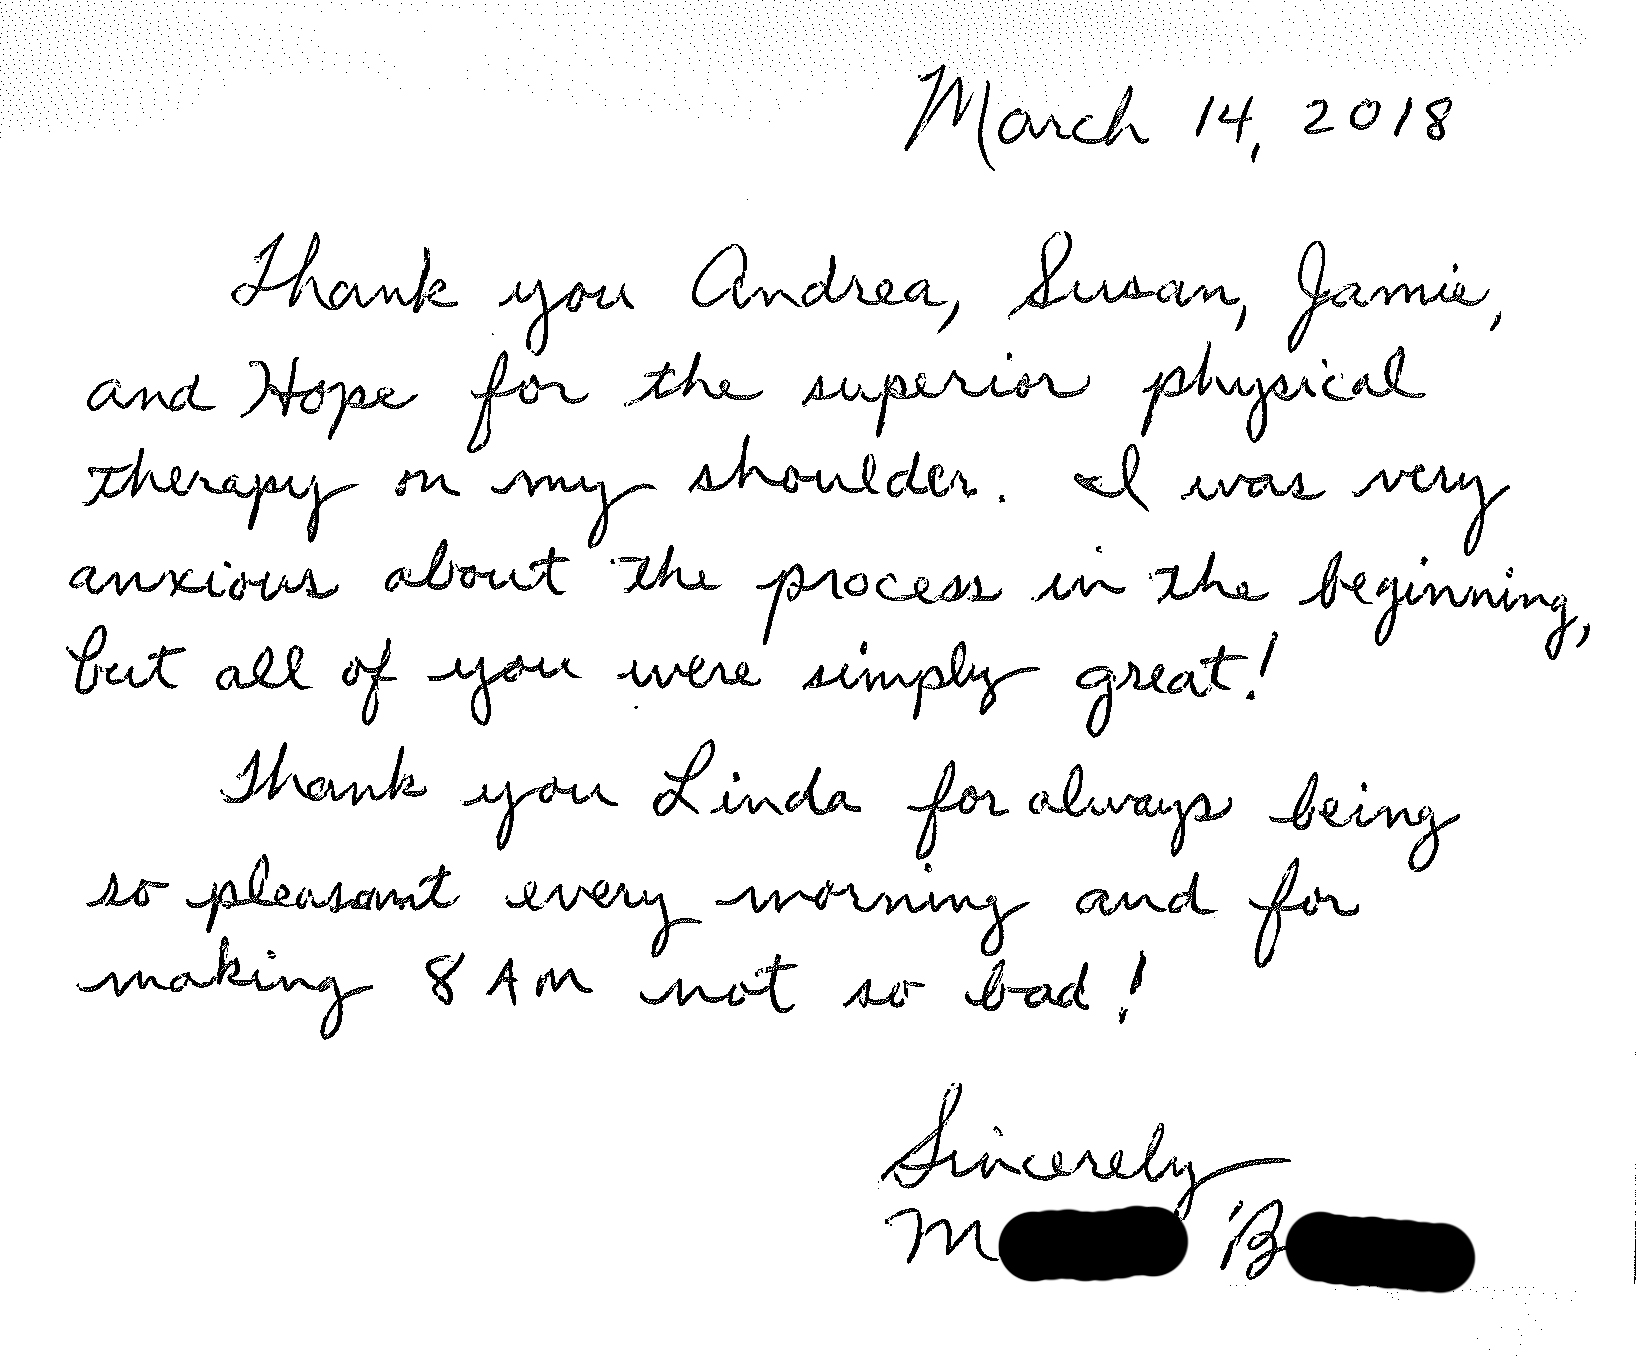 March 14, 2018
Thank you Andrea, Susan, Jamie,
and Hope for the superior physical
therapy on my shoulder. I was very
anxious about the process in the beginning,
but all of you were simply great!
Thank you Linda for always being
so pleasant every morning and for
making 8 AM not so bad!
Sincerely
M B